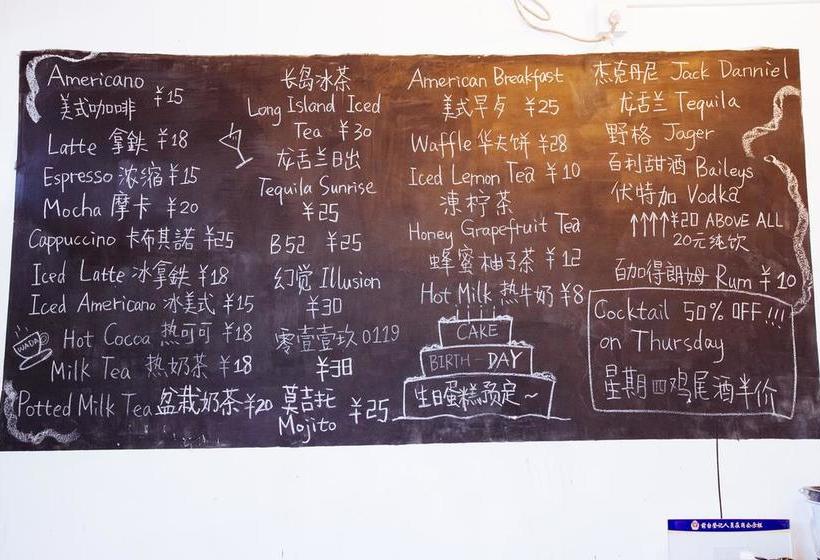 Americano
美式咖啡 ¥15
Latte 拿鉄 ¥18
Espresso 浓缩 ¥15
Mocha 摩卡 ¥20
Cappuccino 卡布其諾 ¥25
Iced Latte 冰拿鉄 ¥18
Iced Americano 冰美式 ¥15
WADA
Hot Cocoa 热可可 ¥18
Milk Tea 热奶茶 ¥18
Potted Milk Tea 盆栽奶茶 ¥20
长岛冰茶
Long Island Iced
Tea ¥30
龙舌兰日出
Tequila Sunrise
¥25
B52 ¥25
幻觉 Illusion
¥30
零壹壹玖 0119
¥38
莫吉托
Mojito ¥25
American Breakfast
美式早夕 ¥25
Waffle 华夫饼 ¥28
Iced Lemon Tea ¥10
凍柠茶
Honey Grapefruit Tea
蜂蜜柚子茶 ¥12
Hot Milk 热牛奶 ¥8
CAKE
BIRTH-DAY
生日蛋糕预定~
杰克丹尼 Jack Danniel
龙舌兰 Tequila
野格 Jager
百利甜酒 Baileys
伏特加 Vodka
↑↑↑↑¥20 ABOVE ALL
20元纯饮
百加得朗姆 Rum ¥10
Cocktail 50% OFF!!!
on Thursday
星期四鸡尾酒半价